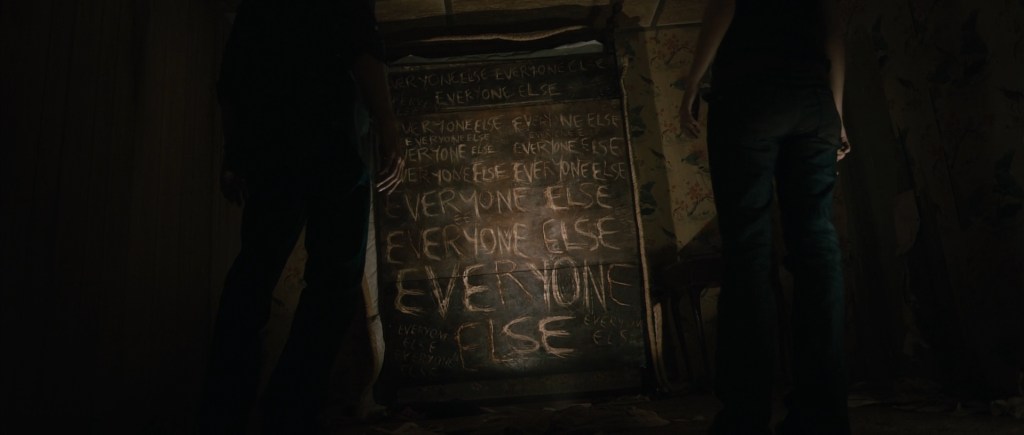 EVERYONE ELSE EVERYONE ELSE
EVERYONE ELSE
EVERYONE ELSE EVERYONE ELSE
EVERYONE ELSE
EVERYONE ELSE EVERYONE ELSE
EVERYONE ELSE EVERYONE ELSE
EVERYONE ELSE
EVERYONE ELSE
EVERYONE
ELSE
EVERYONE
ELSE
EVERYONE
ELSE